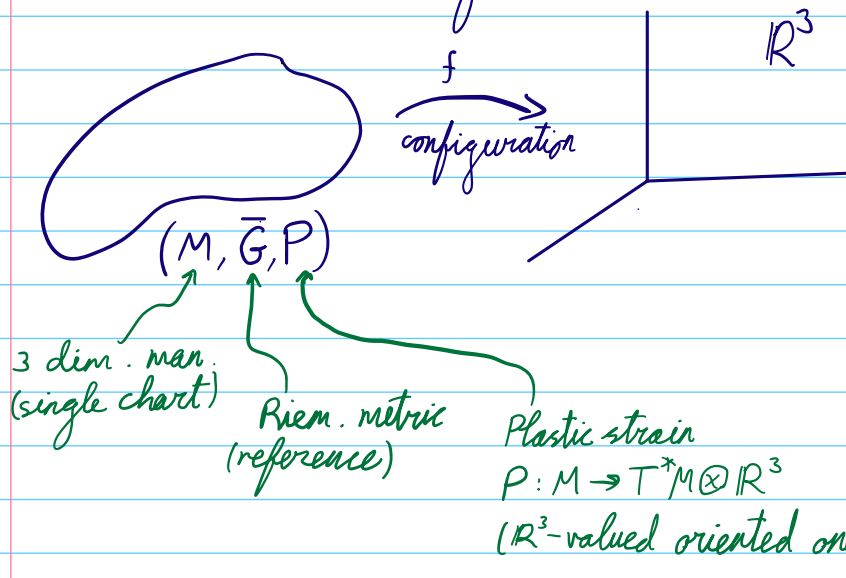 f
ℝ³
configuration
(M, G̅, P)
3 dim. man.
(single chart)
Riem. metric
(reference)
Plastic strain
P : M → T*M ⊗ ℝ³
(ℝ³-valued oriented